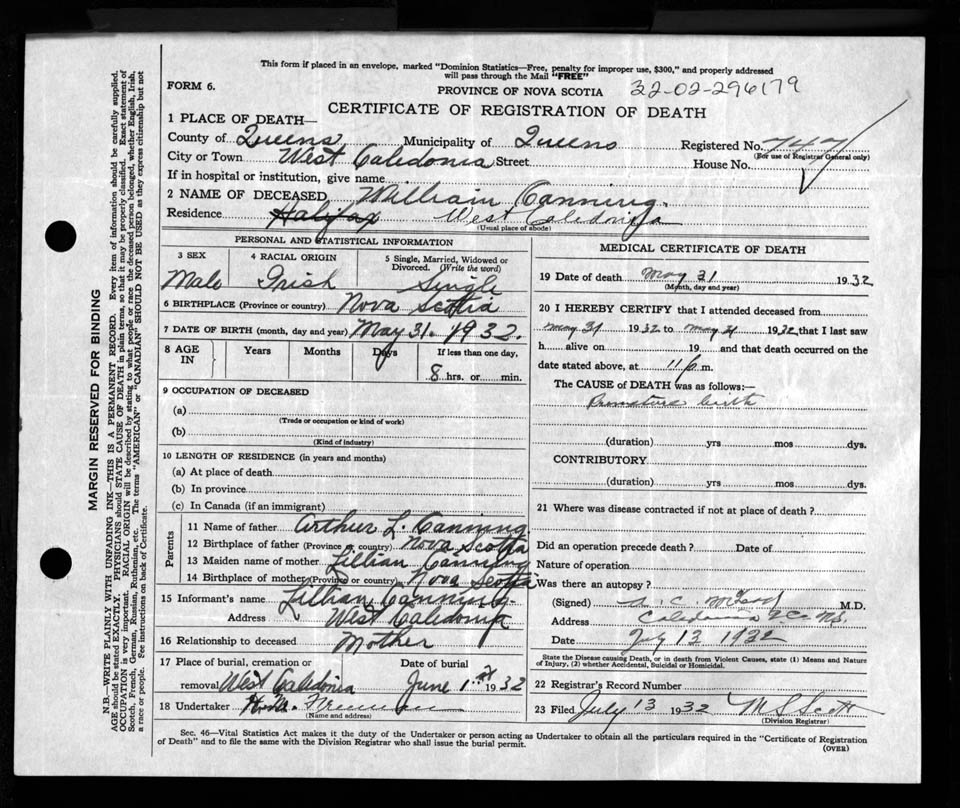 This form if placed in an envelope, marked "Dominion Statistics—Free, penalty for improper use, $300," and properly addressed
will pass through the Mail "FREE"
FORM 6.
PROVINCE OF NOVA SCOTIA 32-02-296179
CERTIFICATE OF REGISTRATION OF DEATH
1 PLACE OF DEATH—
County of Queens Municipality of Queens Registered No. 747
(For use of Registrar General only)
City or Town West Caledonia Street House No.
If in hospital or institution, give name
2 NAME OF DECEASED William Canning.
Residence Halifax West Caledonia
(Usual place of abode)
PERSONAL AND STATISTICAL INFORMATION
3 SEX 4 RACIAL ORIGIN 5 Single, Married, Widowed or Divorced. (Write the word)
Male Irish Single
6 BIRTHPLACE (Province or country) Nova Scotia
7 DATE OF BIRTH (month, day and year) May 31. 1932.
8 AGE IN Years Months Days If less than one day,
8 hrs. or min.
9 OCCUPATION OF DECEASED
(a)
(Trade or occupation or kind of work)
(b)
(Kind of industry)
10 LENGTH OF RESIDENCE (in years and months)
(a) At place of death
(b) In province
(c) In Canada (if an immigrant)
Parents
11 Name of father Arthur L. Canning
12 Birthplace of father (Province or country) Nova Scotia
13 Maiden name of mother Lillian Canning
14 Birthplace of mother (Province or country) Nova Scotia
15 Informant's name Lillian Canning
Address West Caledonia
16 Relationship to deceased Mother
17 Place of burial, cremation or Date of burial
removal West Caledonia June 1st 1932
18 Undertaker
(Name and address)
MEDICAL CERTIFICATE OF DEATH
19 Date of death May 31 1932
(Month, day and year)
20 I HEREBY CERTIFY that I attended deceased from
May 31 1932 to May 31 1932 that I last saw
h alive on 19 and that death occurred on the
date stated above, at 11 p m.
The CAUSE of DEATH was as follows:—
Premature birth
(duration) yrs mos dys.
CONTRIBUTORY
(duration) yrs mos dys.
21 Where was disease contracted if not at place of death?
Did an operation precede death? Date of
Nature of operation
Was there an autopsy?
(Signed) M.D.
Address Caledonia N.S.
Date July 13 1932
State the Disease causing Death, or in death from Violent Causes, state (1) Means and Nature
of Injury, (2) whether Accidental, Suicidal or Homicidal.
22 Registrar's Record Number
23 Filed July 13 1932 M S Scott
(Division Registrar)
Sec. 46—Vital Statistics Act makes it the duty of the Undertaker or person acting as Undertaker to obtain all the particulars required in the "Certificate of Registration
of Death" and to file the same with the Division Registrar who shall issue the burial permit. (OVER)
MARGIN RESERVED FOR BINDING
N.B.—WRITE PLAINLY WITH UNFADING INK—THIS IS A PERMANENT RECORD. Every item of information should be carefully supplied.
AGE should be stated EXACTLY. PHYSICIANS should STATE CAUSE OF DEATH in plain terms, so that it may be properly classified. Exact statement of
OCCUPATION is very important. RACIAL ORIGIN will be described by stating to what people or race the deceased person belonged, whether English, Irish,
Scotch, French, German, Russian, Ruthenian, etc. The terms "AMERICAN" or "CANADIAN" SHOULD NOT BE USED as they express citizenship but not
a race or people. See instructions on back of Certificate.